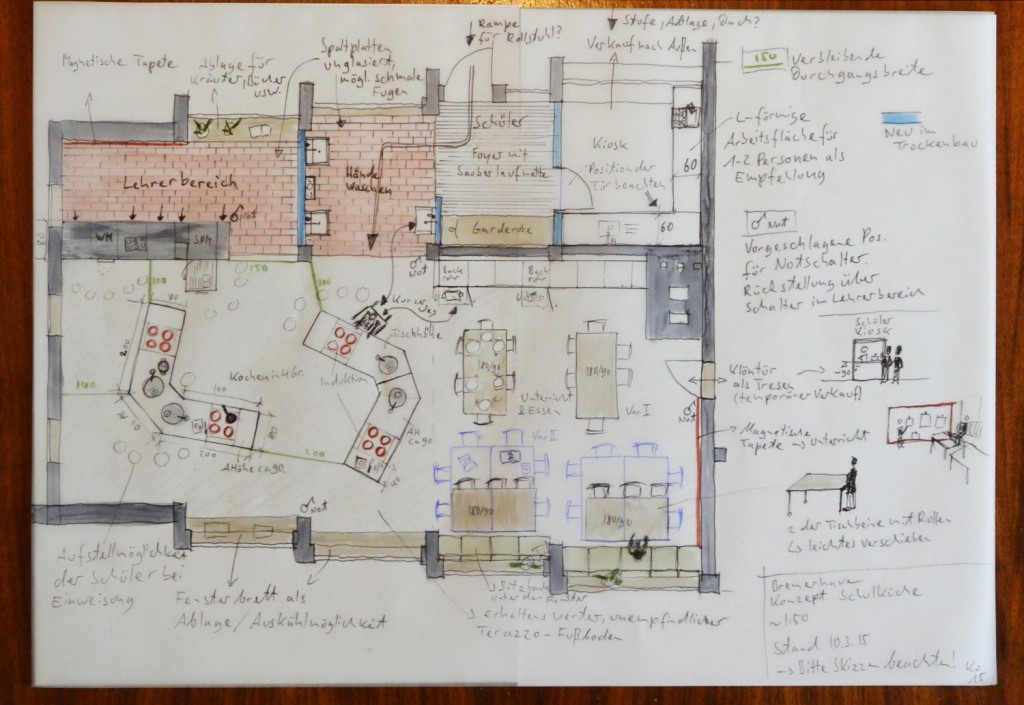 Rampe
für Rollstuhl?
Stufe, Ablage, Dach?
Verkauf nach Außen
Magnetische Tapete
Ablage für
Kräuter, Bücher
usw.
Spaltplatten
unglasiert,
mögl. schmale
Fugen
150
Verbleibende
Durchgangsbreite
Neu im
Trockenbau
L-förmige
Arbeitsfläche für
1-2 Personen als
Empfehlung
Schüler
Foyer mit
Sauberlaufmatte
Kiosk
Position der
Tür beachten
60
60
Lehrerbereich
Hände
waschen
Garderobe
Not
WM
SPM
Not
Not
Vorgeschlagene Pos.
für Notschalter.
Rückstellung über
Schalter im Lehrerbereich
100
150
100
Back
rohr
Back
rohr
Kurzer
Weg
Tischhöhe
80
200
Kochen in 4 Gr.
Induktion
100
160
200
AHöhe ca 90.
200
AH
ca 90
180/90
180/90
Unterricht
& Essen
Var I
Var II
180/90
180/90
Schüler
Kiosk
Klöntür
als Tresen
(temporärer Verkauf)
Not
Magnetische
Tapete → Unterricht
2 der Tischbeine mit Rollen
↳ leichtes Verschieben
Not
Aufstellmöglichkeit
der Schüler bei
Einweisung
Fensterbrett als
Ablage/Auskühlmöglichkeit
Sitzbank
unter den Fenster
erhaltenswerter, unempfindlicher
Terazzo-Fußboden
Bremerhaven
Konzept Schulküche
~1:50
Stand 10.3.15
→ Bitte Skizzen beachten!
15